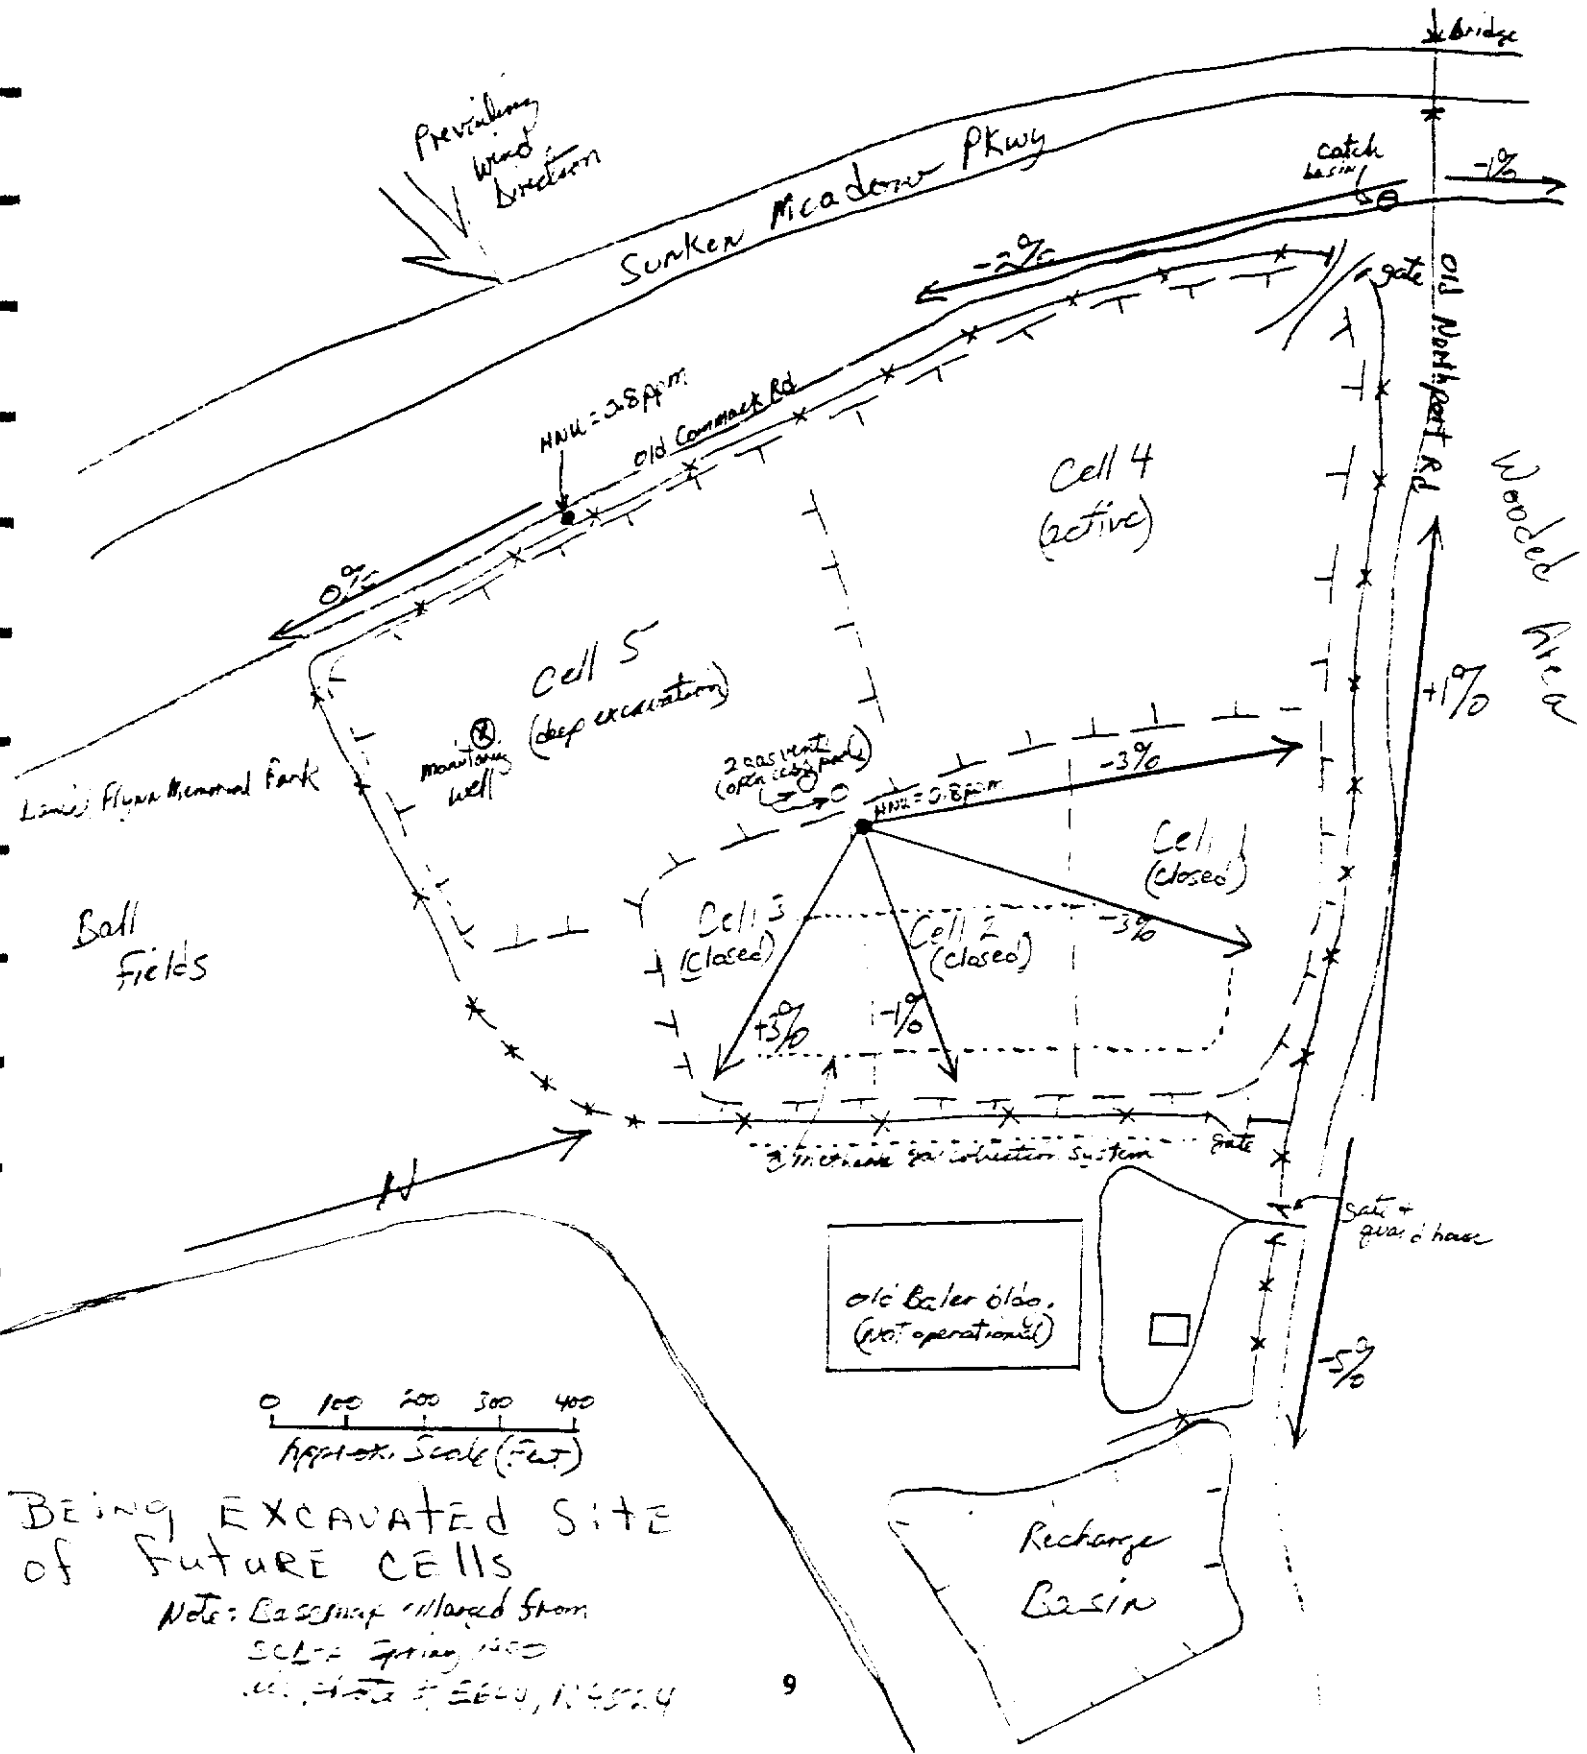 Bridge
Prevailing
Wind
Direction
Sunken Meadow PKwy
catch
basin
-1%
-2%
gate
Old Northport Rd
HNU = 0.8ppm
Old Commack Rd
0%
Cell 4
(active)
Wooded Area
+1%
Cell 5
(deep excavation)
monitoring
well
2 gas vent
-3%
HNU = 0.8ppm
Flynn Memorial Park
Ball
Fields
Cell 1
(closed)
Cell 3
(closed)
Cell 2
(closed)
-3%
+3%
-1%
methane gas collection system
gate
N
gate +
guard house
old Baler bldg.
(Not operational)
-5%
0 100 200 300 400
Approx. Scale (Feet)
BEiNg EXCAVAtEd SitE
of FutURE CElls
Note: Basemap enlarged from
Spring
Recharge
Basin
9